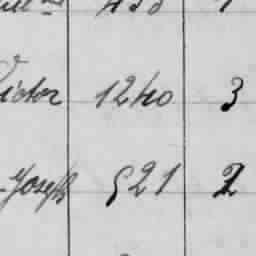 Victor 1240 3
Joseph 521 2